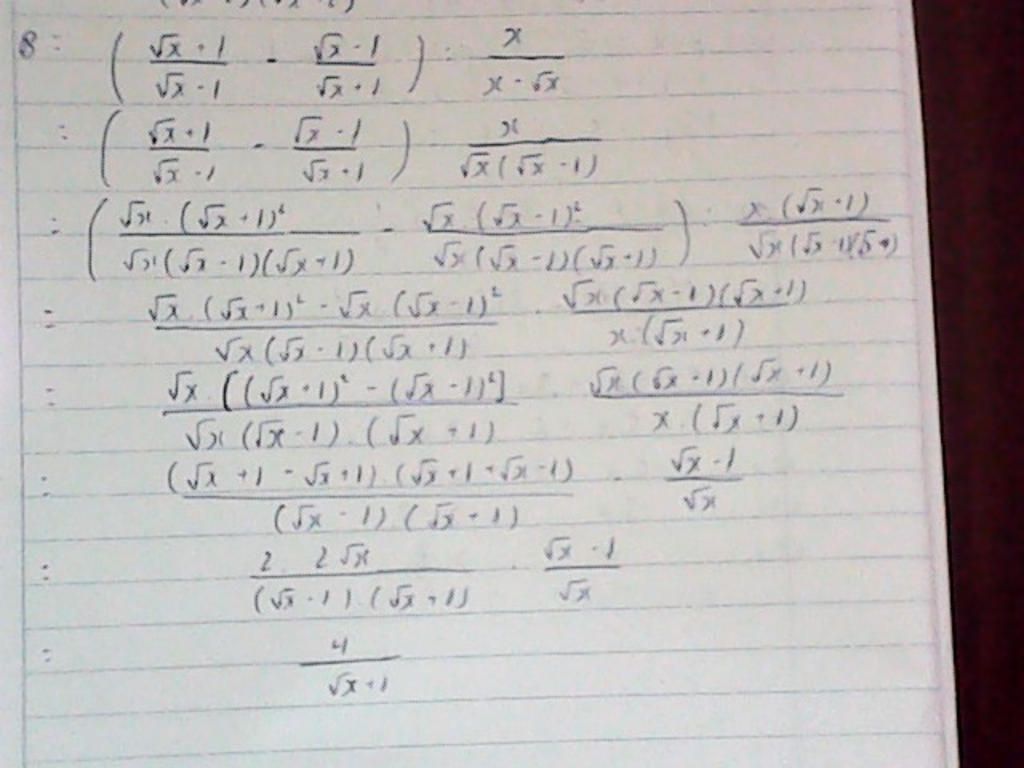 B = ( (√x + 1)/(√x - 1) - (√x - 1)/(√x + 1) ) : x/(x - √x)
= ( (√x + 1)/(√x - 1) - (√x - 1)/(√x + 1) ) : x/(√x(√x - 1))
= ( (√x . (√x + 1)²)/(√x(√x - 1)(√x + 1)) - (√x . (√x - 1)²)/(√x(√x - 1)(√x + 1)) ) : (x . (√x + 1))/(√x(√x - 1)(√x + 1))
= (√x . (√x + 1)² - √x . (√x - 1)²)/(√x(√x - 1)(√x + 1)) . (√x . (√x - 1)(√x + 1))/(x . (√x + 1))
= (√x . [(√x + 1)² - (√x - 1)²])/(√x(√x - 1) . (√x + 1)) . (√x . (√x - 1)(√x + 1))/(x . (√x + 1))
= ((√x + 1 - √x + 1) . (√x + 1 + √x - 1))/((√x - 1) . (√x + 1)) . (√x - 1)/√x
= (2 . 2√x)/((√x - 1) . (√x + 1)) . (√x - 1)/√x
= 4/(√x + 1)